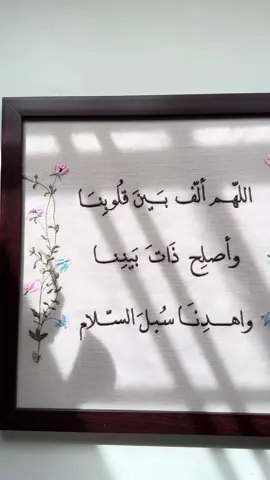 اللّهم ألّف بَينَ قلُوبِنَا
وأصلِح ذَاتَ بَينِنا
واهدِنَا سُبلَ السّلام